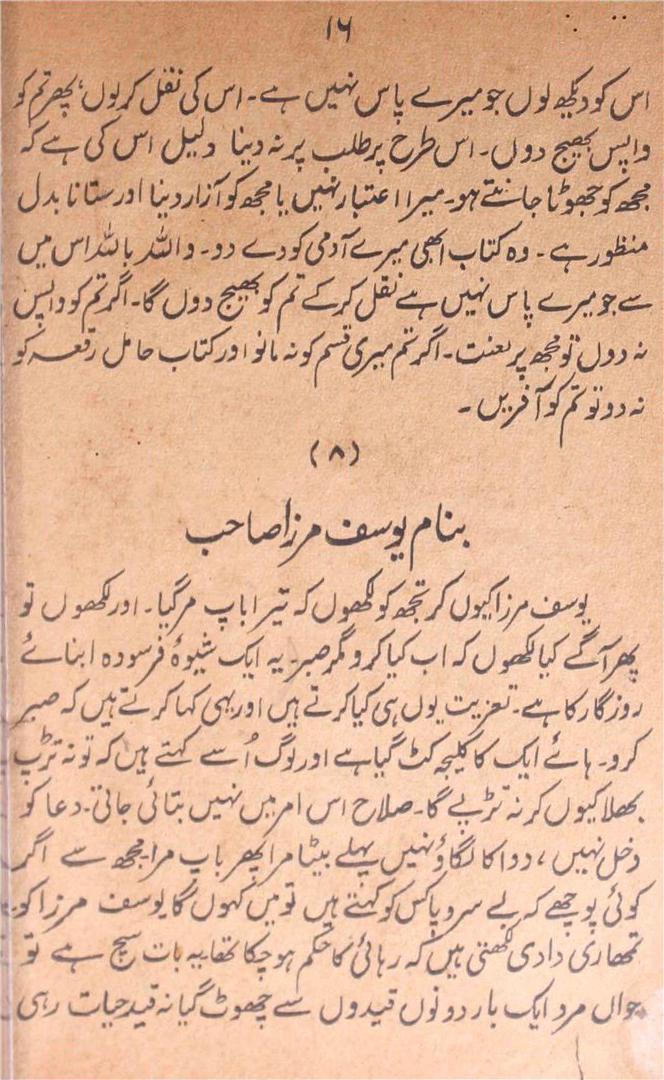 ۱۶
اس کو دیکھ لوں جو میرے پاس نہیں ہے۔ اس کی نقل کرلوں، پھر تم کو
واپس بھیج دوں۔ اس طرح پر طلب پر نہ دینا دلیل اس کی ہے کہ
مجھ کو جھوٹا جانتے ہو۔ میرا اعتبار نہیں یا مجھ کو آزار دینا اور ستانا بدل
منظور ہے۔ وہ کتاب ابھی میرے آدمی کو دے دو۔ واللہ باللہ اس میں
سے جو میرے پاس نہیں ہے نقل کرکے تم کو بھیج دوں گا۔ اگر تم کو واپس
نہ دوں تو مجھ پر لعنت۔ اگر تم میری قسم کو نہ مانو اور کتاب حامل رقعہ کو
نہ دو تو تم کو آفریں۔
(۸)
بنام یوسف مرزا صاحب
یوسف مرزا کیوں کر تجھ کو لکھوں کہ تیرا باپ مرگیا۔ اور لکھوں تو
پھر آگے کیا لکھوں کہ اب کیا کرو مگر صبر۔ یہ ایک شیوۂ فرسودہ ابنائے
روزگار کا ہے۔ تعزیت یوں ہی کیا کرتے ہیں اور یہی کہا کرتے ہیں کہ صبر
کرو۔ ہائے ایک کا کلیجہ کٹ گیا ہے اور لوگ اُسے کہتے ہیں کہ تو نہ تڑپ
بھلا کیوں کر نہ تڑپے گا۔ صلاح اس امر میں نہیں بتائی جاتی۔ دعا کو
دخل نہیں، دوا کا لگاؤ نہیں پہلے بیٹا مرا پھر باپ مرا مجھ سے اگر
کوئی پوچھے کہ بے سر و پا کس کو کہتے ہیں تو میں کہوں گا یوسف مرزا کو۔
تمھاری دادی لکھتی ہیں کہ رہائی کا حکم ہوچکا تھا یہ بات سچ ہے تو
جواں مرد ایک بار دونوں قیدوں سے چھوٹ گیا نہ قید حیات رہی